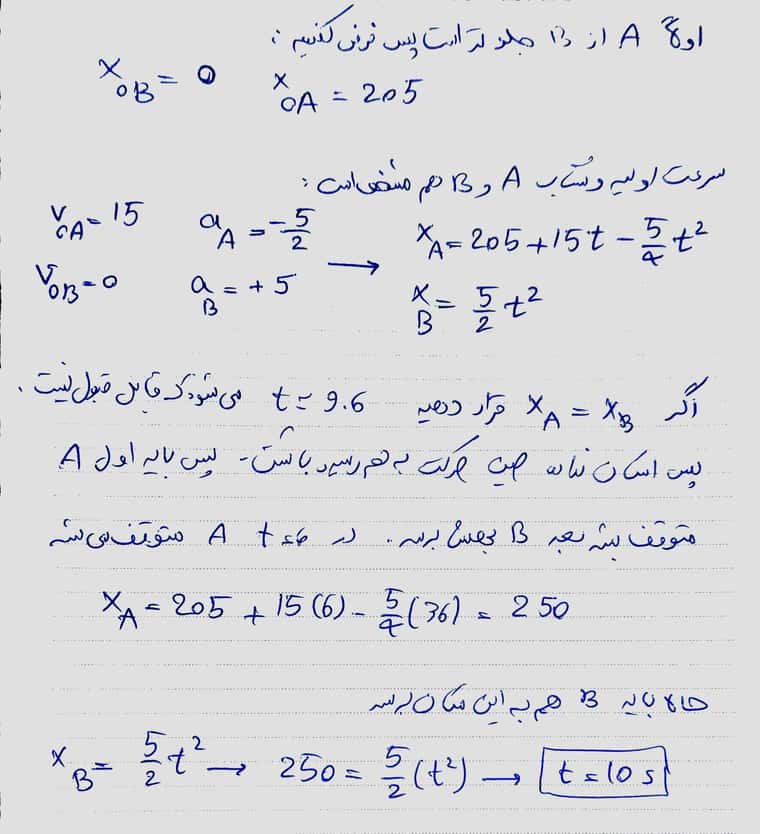 اولاً A از B جلو تر است پس فرض کنیم :
x₀B = 0    x₀A = 205
سرعت اولیه و شتاب A و B هم مشخص است :
v₀A = 15    aA = -5/2    xA = 205 + 15t - 5/4 t²
v₀B = 0    aB = +5    →    xB = 5/2 t²
اگر xA = xB قرار دهیم t ≈ 9.6 می شود که قابل قبول نیست .
پس امکان ندارد حین حرکت به هم رسیده باشند - پس باید اول A
متوقف بشه بعد B بهش برسه . در t=6 A متوقف می شه
xA = 205 + 15(6) - 5/4(36) = 250
حالا باید B هم به این مکان برسه
xB = 5/2 t² → 250 = 5/2 (t²) → t = 10 s